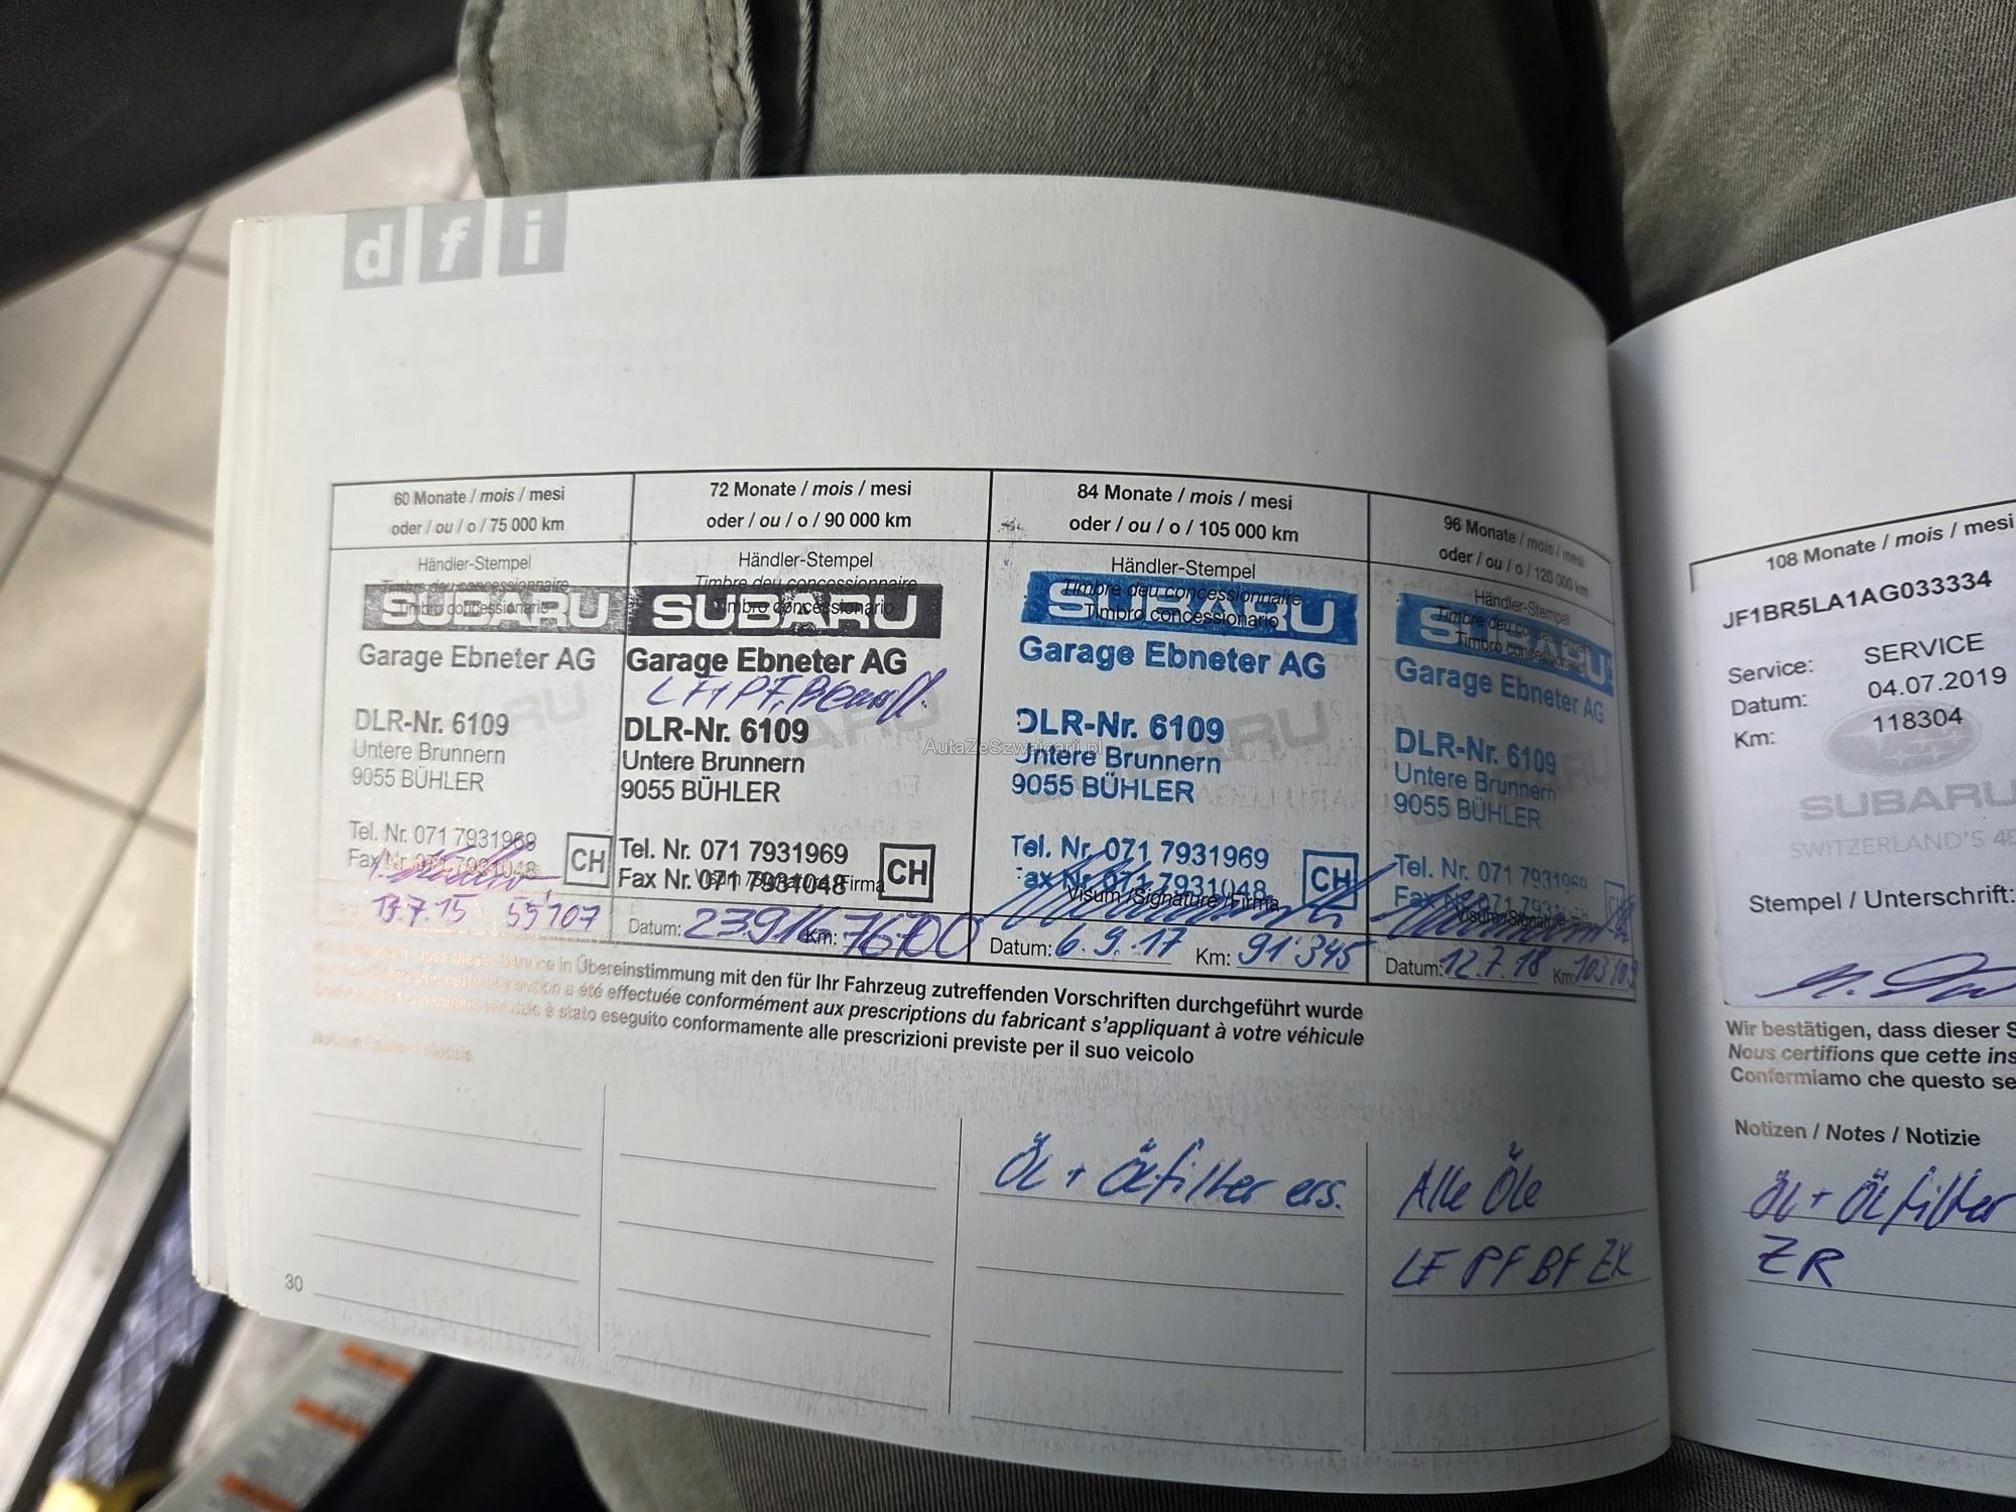 d f i
60 Monate / mois / mesi
oder / ou / o / 75 000 km
Händler-Stempel
Timbre deu concessionnaire
Timbro concessionario
SUBARU
Garage Ebneter AG
DLR-Nr. 6109
Untere Brunnern
9055 BÜHLER
Tel. Nr. 071 7931969
Fax Nr. 071 7931048
CH
13.7.15 55107
72 Monate / mois / mesi
oder / ou / o / 90 000 km
Händler-Stempel
Timbre deu concessionnaire
Timbro concessionario
SUBARU
Garage Ebneter AG
LF, PF,
DLR-Nr. 6109
Untere Brunnern
9055 BÜHLER
Tel. Nr. 071 7931969
Fax Nr. 071 7931048
Visum /Signature /Firma
CH
Datum: 23.9.16 Km: 76700
84 Monate / mois / mesi
oder / ou / o / 105 000 km
Händler-Stempel
Timbre deu concessionnaire
Timbro concessionario
SUBARU
Garage Ebneter AG
DLR-Nr. 6109
Untere Brunnern
9055 BÜHLER
Tel. Nr. 071 7931969
Fax Nr. 071 7931048
Visum /Signature /Firma
CH
Datum: 6.9.17 Km: 91'345
96 Monate / mois / mesi
oder / ou / o / 120 000 km
Händler-Stempel
Timbre deu concessionnaire
Timbro concessionario
SUBARU
Garage Ebneter AG
DLR-Nr. 6109
Untere Brunnern
9055 BÜHLER
Tel. Nr. 071 7931969
Fax Nr. 071 7931048
Visum /Signature /Firma
Datum: 12.7.18 Km:
AutaZeSzwajcarii.pl
dass dieser Service in Übereinstimmung mit den für Ihr Fahrzeug zutreffenden Vorschriften durchgeführt wurde
a été effectuée conformément aux prescriptions du fabricant s'appliquant à votre véhicule
è stato eseguito conformamente alle prescrizioni previste per il suo veicolo
Öl + Ölfilter ers.
Alle Öle
LF PF BF ZK
30
108 Monate / mois / mesi
JF1BR5LA1AG033334
Service: SERVICE
Datum: 04.07.2019
Km: 118304
SUBARU
SWITZERLAND'S
Stempel / Unterschrift:
Wir bestätigen, dass dieser
Nous certifions que cette
Confermiamo che questo
Notizen / Notes / Notizie
Öl + Ölfilter
ZR